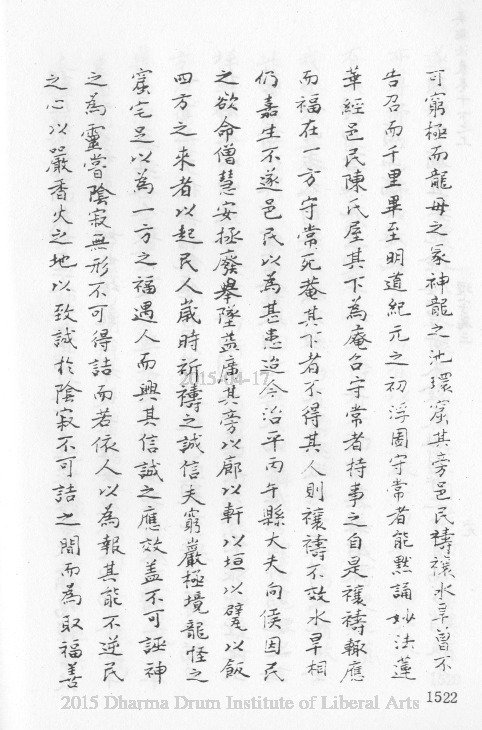 可窮極而龍母之冢神龍之池環窟其旁邑民禱禳水旱曾不
告召而千里畢至明道紀元之初浮圖守常者能默誦妙法蓮
華經邑民陳氏屋其下為庵召守常者持事之自是禳禱輙應
而福在一方守常死菴其下者不得其人則禳禱不效水旱相
仍嘉生不遂邑民以為甚患迨令治平丙午縣大夫向侯因民
之欲命僧慧安拯廢舉墜益席其旁以廊以軒以垣以甓以飯
四方之來者以起民人歲時祈禱之誠信夫窮巖極境龍怪之
窟宅足以為一方之福遇人而興其信誠之應效盖不可誣神
之為靈嘗陰寂無形不可得詰而若依人以為報其能不逆民
之心以嚴香火之地以致誠於陰寂不可詰之間而為取福善
1522
2015/04-17
2015 Dharma Drum Institute of Liberal Arts